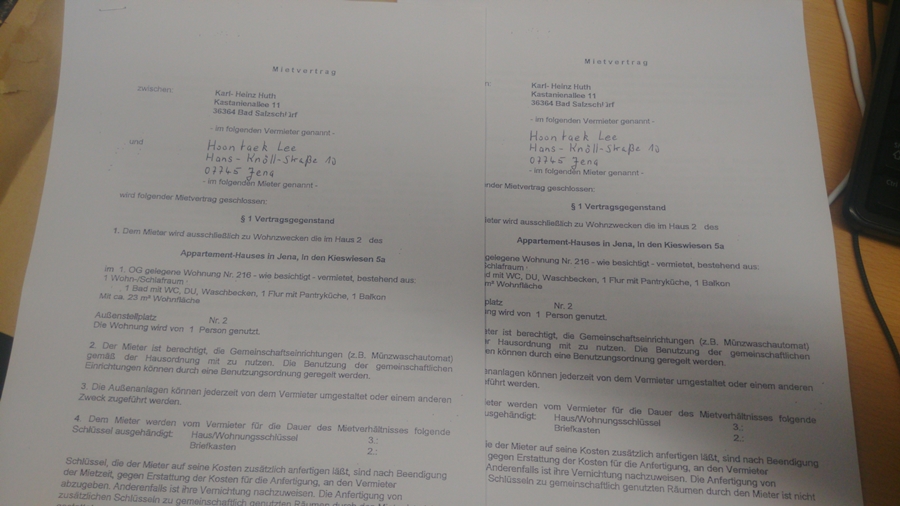 Mietvertrag
zwischen:
Karl- Heinz Huth
Kastanienallee 11
36364 Bad Salzschlirf
- im folgenden Vermieter genannt -
und
Hoontaek Lee
Hans-Knöll-Straße 10
07745 Jena
- im folgenden Mieter genannt -
wird folgender Mietvertrag geschlossen:
§ 1 Vertragsgegenstand
1. Dem Mieter wird ausschließlich zu Wohnzwecken die im Haus 2 des
Appartement-Hauses in Jena, In den Kieswiesen 5a
im 1. OG gelegene Wohnung Nr. 216 - wie besichtigt - vermietet, bestehend aus:
1 Wohn-/Schlafraum
1 Bad mit WC, DU, Waschbecken, 1 Flur mit Pantryküche, 1 Balkon
Mit ca. 23 m² Wohnfläche
Außenstellplatz Nr. 2
Die Wohnung wird von 1 Person genutzt.
2. Der Mieter ist berechtigt, die Gemeinschaftseinrichtungen (z.B. Münzwaschautomat)
gemäß der Hausordnung mit zu nutzen. Die Benutzung der gemeinschaftlichen
Einrichtungen können durch eine Benutzungsordnung geregelt werden.
3. Die Außenanlagen können jederzeit von dem Vermieter umgestaltet oder einem anderen
Zweck zugeführt werden.
4. Dem Mieter werden vom Vermieter für die Dauer des Mietverhältnisses folgende
Schlüssel ausgehändigt: Haus/Wohnungsschlüssel 3.:
Briefkasten 2.:
Schlüssel, die der Mieter auf seine Kosten zusätzlich anfertigen läßt, sind nach Beendigung
der Mietzeit, gegen Erstattung der Kosten für die Anfertigung, an den Vermieter
abzugeben. Anderenfalls ist ihre Vernichtung nachzuweisen. Die Anfertigung von
zusätzlichen Schlüsseln zu gemeinschaftlich genutzten Räumen durch den Mieter ist
Mietvertrag
n
Karl- Heinz Huth
Kastanienallee 11
36364 Bad Salzschlirf
- im folgenden Vermieter genannt -
Hoontaek Lee
Hans-Knöll-Straße 10
07745 Jena
- im folgenden Mieter genannt -
ender Mietvertrag geschlossen:
§ 1 Vertragsgegenstand
ieter wird ausschließlich zu Wohnzwecken die im Haus 2 des
Appartement-Hauses in Jena, In den Kieswiesen 5a
gelegene Wohnung Nr. 216 - wie besichtigt - vermietet, bestehend aus:
Schlafraum
d mit WC, DU, Waschbecken, 1 Flur mit Pantryküche, 1 Balkon
m² Wohnfläche
platz Nr. 2
ng wird von 1 Person genutzt.
ter ist berechtigt, die Gemeinschaftseinrichtungen (z.B. Münzwaschautomat)
r Hausordnung mit zu nutzen. Die Benutzung der gemeinschaftlichen
en können durch eine Benutzungsordnung geregelt werden.
nanlagen können jederzeit von dem Vermieter umgestaltet oder einem anderen
führt werden.
ieter werden vom Vermieter für die Dauer des Mietverhältnisses folgende
usgehändigt: Haus/Wohnungsschlüssel 3.:
Briefkasten 2.:
ie der Mieter auf seine Kosten zusätzlich anfertigen läßt, sind nach Beendigung
gegen Erstattung der Kosten für die Anfertigung, an den Vermieter
Anderenfalls ist ihre Vernichtung nachzuweisen. Die Anfertigung von
Schlüsseln zu gemeinschaftlich genutzten Räumen durch den Mieter ist nicht